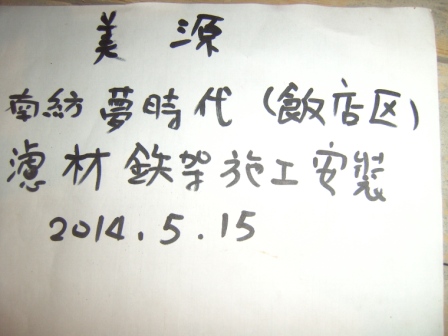 美源
南紡夢時代(飯店区)
濾材鉄架施工安裝
2014.5.15